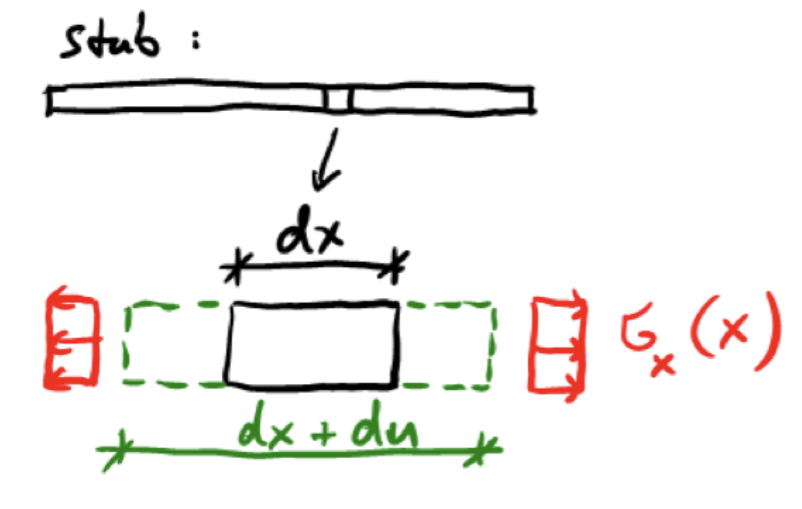 Stab :
dx
σx(x)
dx + du